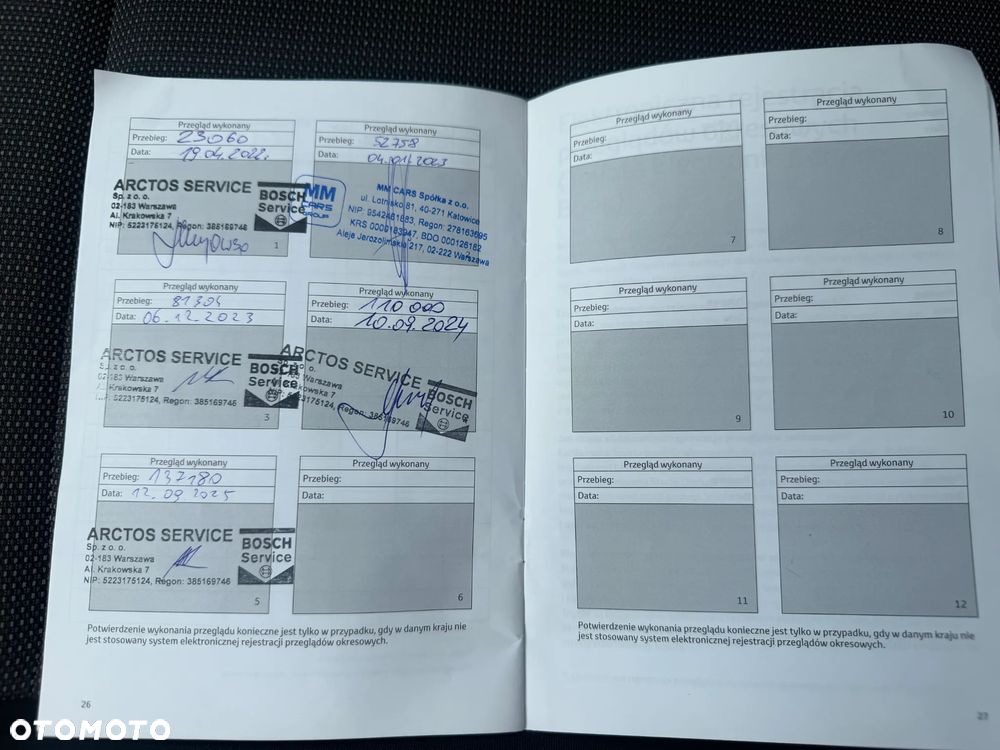 Przegląd wykonany
Przebieg: 23060
Data: 19.04.2022r.
ARCTOS SERVICE
Sp. z o. o.
02-183 Warszawa
Al. Krakowska 7
NIP: 5223175124, Regon: 385169746
BOSCH
Service
1
Przegląd wykonany
Przebieg: 52758
Data: 04.01.2023
MM
CARS
GROUP
MM CARS Spółka z o.o.
ul. Lotnisko 81, 40-271 Katowice
NIP: 9542461883, Regon: 278163695
KRS 0000183947, BDO 000126162
Aleje Jerozolimskie 217, 02-222 Warszawa
Przegląd wykonany
Przebieg: 81304
Data: 06.12.2023
ARCTOS SERVICE
Sp. z o. o.
02-183 Warszawa
Al. Krakowska 7
NIP: 5223175124, Regon: 385169746
BOSCH
Service
3
Przegląd wykonany
Przebieg: 110 000
Data: 10.09.2024
ARCTOS SERVICE
Sp. z o. o.
02-183 Warszawa
Al. Krakowska 7
NIP: 5223175124, Regon: 385169746
BOSCH
Service
4
Przegląd wykonany
Przebieg: 137180
Data: 12.09.2025
ARCTOS SERVICE
Sp. z o. o.
02-183 Warszawa
Al. Krakowska 7
NIP: 5223175124, Regon: 385169746
BOSCH
Service
5
Przegląd wykonany
Przebieg:
Data:
6
Potwierdzenie wykonania przeglądu konieczne jest tylko w przypadku, gdy w danym kraju nie
jest stosowany system elektronicznej rejestracji przeglądów okresowych.
26
Przegląd wykonany
Przebieg:
Data:
7
Przegląd wykonany
Przebieg:
Data:
8
Przegląd wykonany
Przebieg:
Data:
9
Przegląd wykonany
Przebieg:
Data:
10
Przegląd wykonany
Przebieg:
Data:
11
Przegląd wykonany
Przebieg:
Data:
12
Potwierdzenie wykonania przeglądu konieczne jest tylko w przypadku, gdy w danym kraju nie
jest stosowany system elektronicznej rejestracji przeglądów okresowych.
27
OTOMOTO